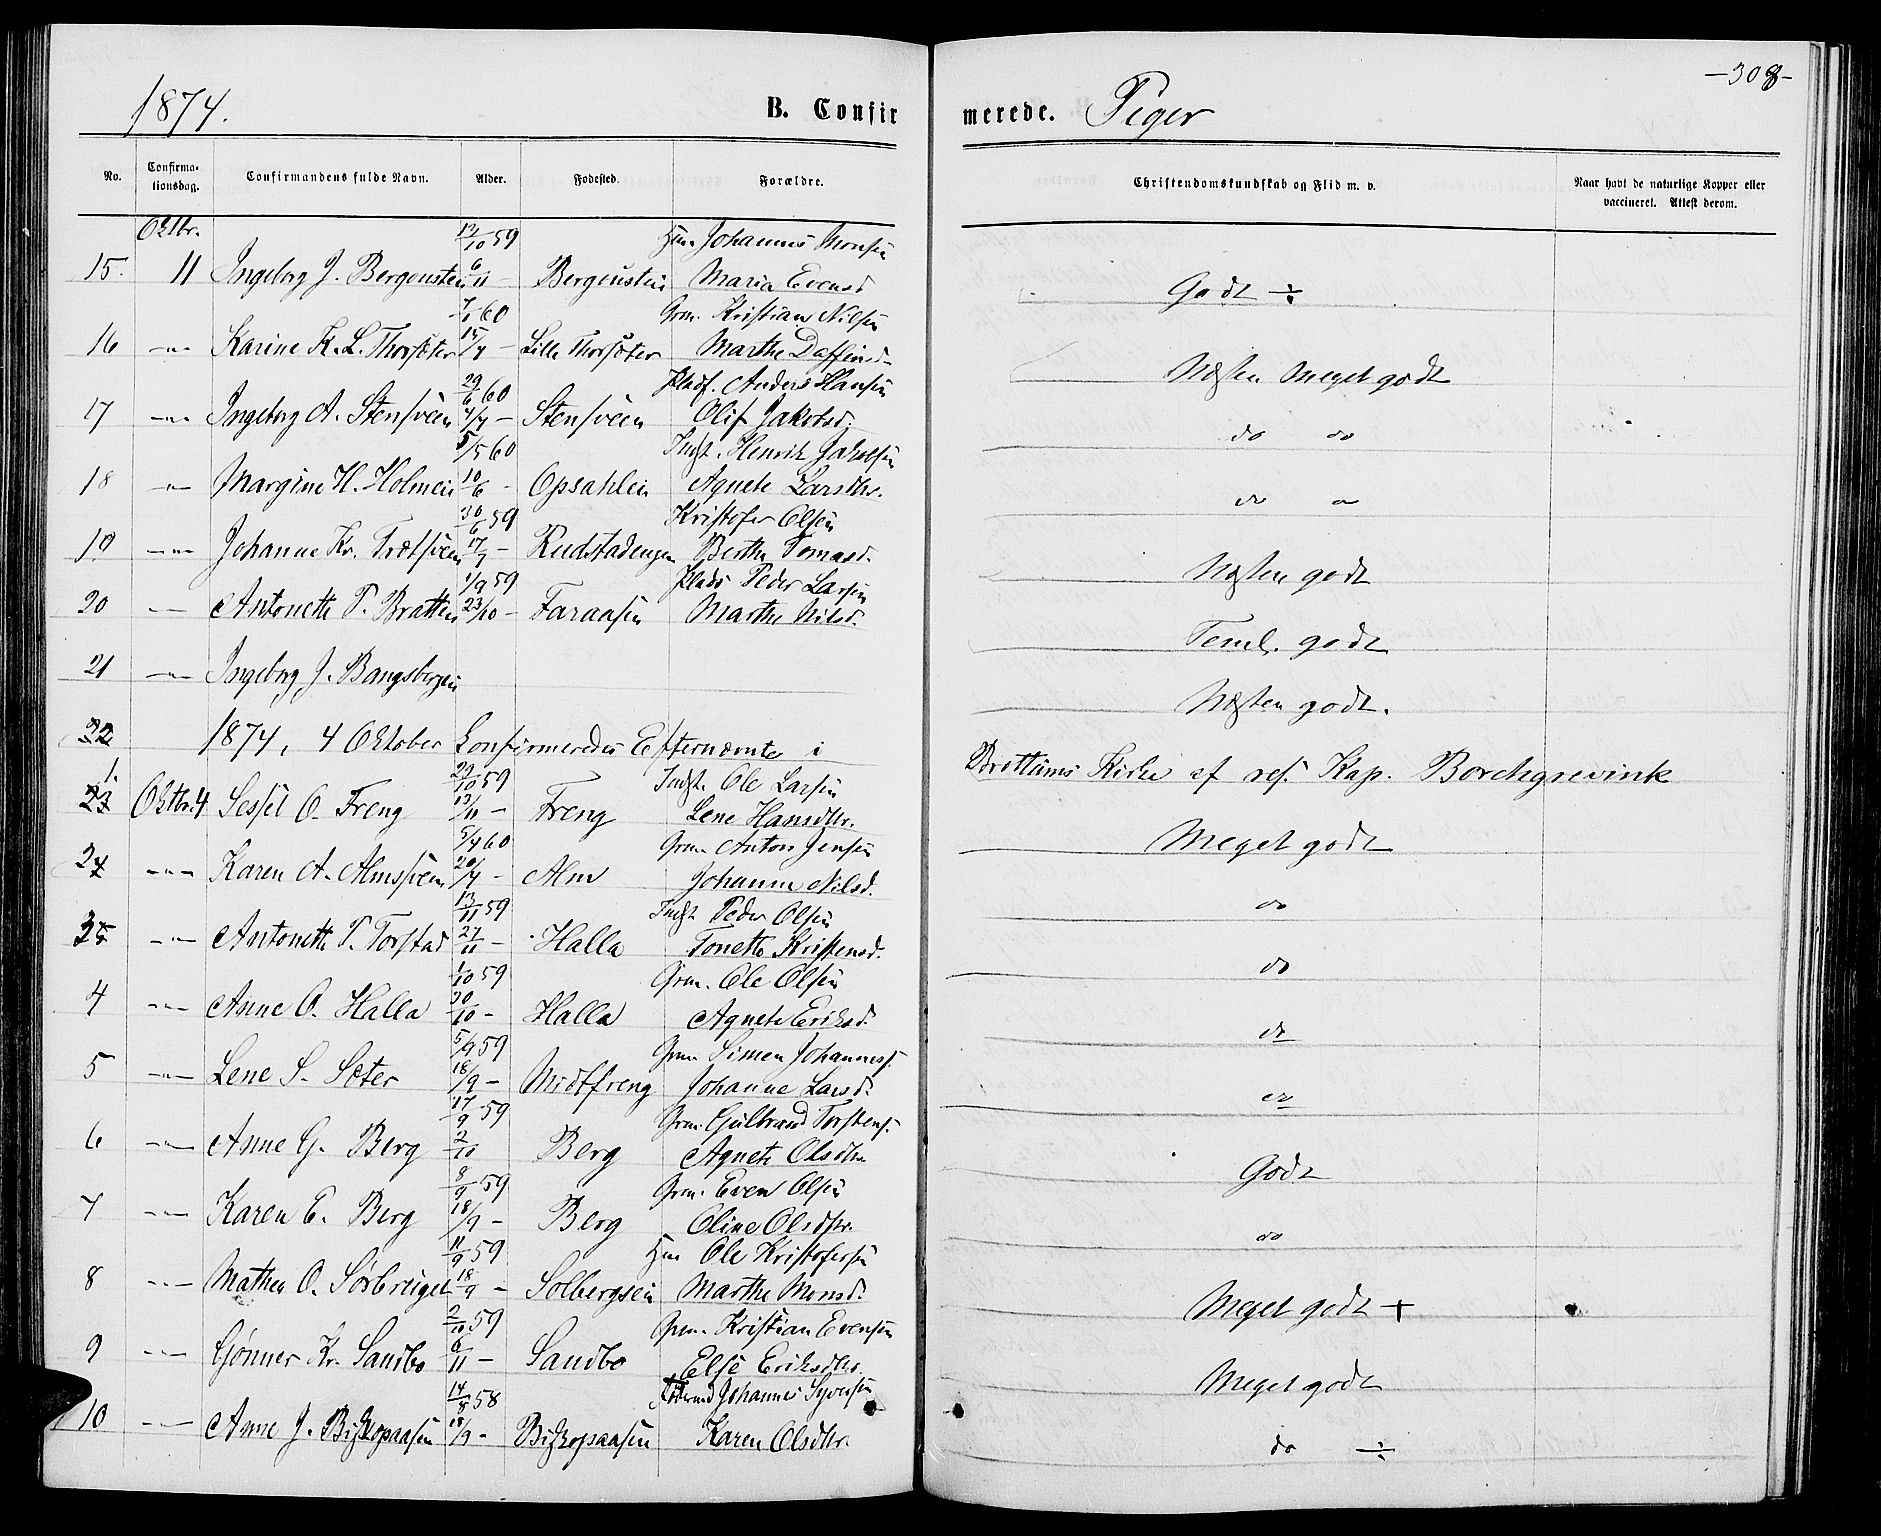 -308-
1874. B. Confirmerede. Piger
No. Confirmationsdag. Confirmandens fulde Navn. Alder. Fødested. Forældre. Christendomskundskab og Flid m. v. Naar havt de naturlige Kopper eller vaccineret. Attest derom.
Oktbr. 13/10 59 Hm. Johannes Monsen
15. 11 Ingeborg J. Bergensteen 6/11 - Bergenstein Maria Evensd Godt ÷
60 Grm. Kristian Nilsen
16 -"- Karine K. L. Thorsæter 15/4 - Lille Thorsæter Marthe Daffinsd. Næsten meget godt
29/6 60 Pladf. Anders Hansen
17 -"- Ingeborg A. Stensveen - Stensveen Olif Jakobsd. do do
5/5 60 Indst. Henrik Jakobsen
18 -"- Margine H. Holmen 10/6 - Opsahlen Agnete Larsdtr. do do
30/6 59 Kristofer Olsen
19 -"- Johanne Kr. Trætsveen 17/7 - Rudstadengen Berthe Tomasd. Næsten godt
1/9 59 Plads Peder Larsen
20 -"- Antonette P. Bratten 23/10 - Faraasen Marthe Nilsd. Teml. godt
21 -"- Ingeborg J. Bangsbergen Næsten godt.
22 1874, 4 Oktober Konfirmeredes Efternævnte i Brøttums Kirke af res. Kap. Borchgrevink
29/10 59 Indst. Ole Larsen
1 23 Oktbr. 4 Sessil O. Freng 13/11 - Freng Lene Hansdtr. Meget godt
5/4 60 Grm. Anton Jensen
24 -"- Karen A. Almssveen - Alm Johanne Nilsd. do
13/11 59 Indst Peder Olsen
35 -"- Antonette P. Torstad 27/11 - Halla Tonette Kristensd. do
1/10 59 Grm. Ole Olsen
4 -"- Anne O. Halla 30/10 - Halla Agnete Eriksd. do
5/9 59 Grm Simen Johanness.
5 -"- Lene S. Sæter 18/9 - Midtfreng Johanne Larsd. do
17/9 59 Grm. Gulbrand Torstens.
6 -"- Anne G. Berg 2/10 Berg Agnete Olsdtr Godt
8/9 59 Grm. Even Olsen
7 -"- Karen E. Berg 18/9 - Berg Oline Olsdtr. do
11/9 59 Hm Ole Kristofersen
8 -"- Mathea O. Sørbreigel 18/9 - Solbergseie Marthe Monsd. Meget godt +
2/10 59 Grm. Kristian Evensen
9 -"- Gønner Kr. Sandbo 6/11 - Sandbo Else Eriksdtr. Meget godt
14/8 58 Johannes Syversen
10 -"- Anne J. Biskopaasen 18/9 - Biskopaasen Karen Olsdtr. do ÷